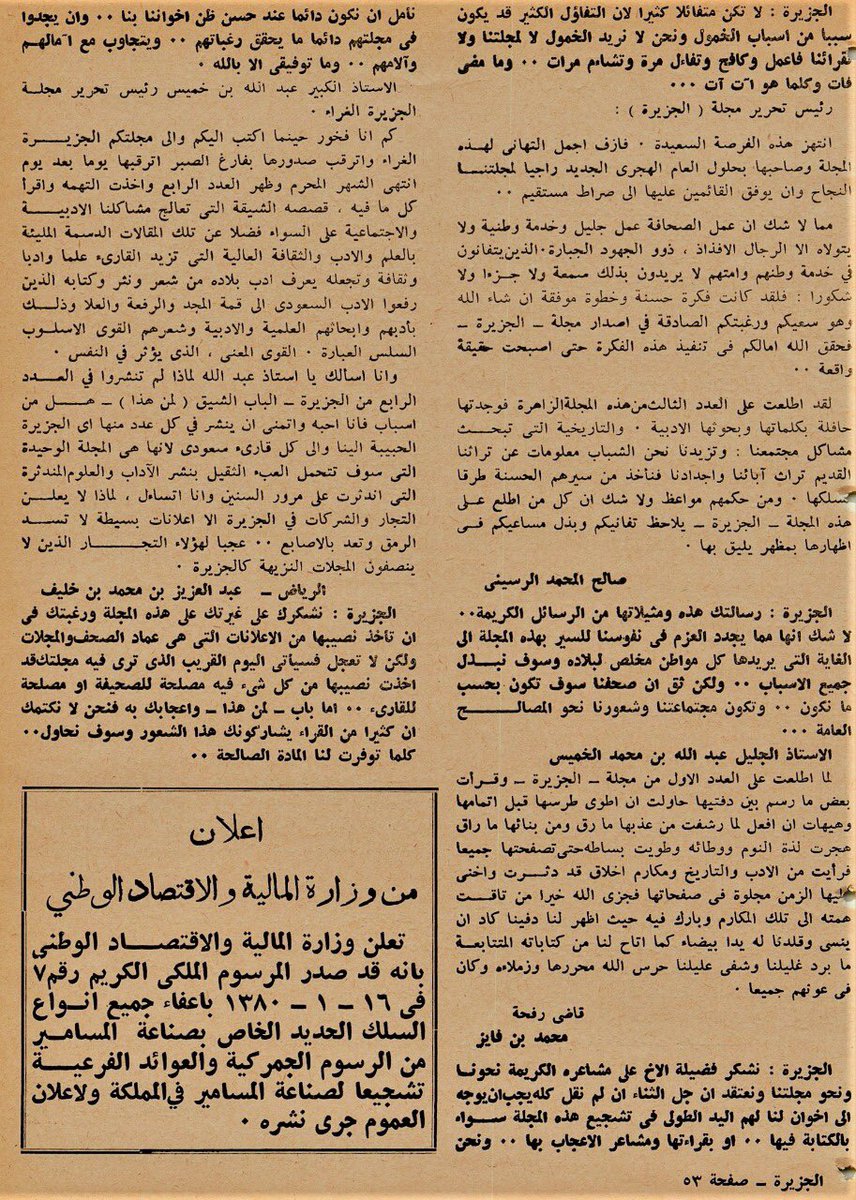 الجزيرة : لا تكن متفائلا كثيرا لان التفاؤل الكثير قد يكون
سببا من اسباب الخمول ونحن لا نريد الخمول لا لمجلتنا ولا
لقرائنا فاعمل وكافح وتفاءل مرة وتشاءم مرات ٠٠ وما مضى
فات وكلما هو آت آت ٠٠٠
رئيس تحرير مجلة ( الجزيرة ) :
انتهز هذه الفرصة السعيدة ٠ فازف اجمل التهانى لهذه
المجلة وصاحبها بحلول العام الهجرى الجديد راجيا لمجلتنا
النجاح وان يوفق القائمين عليها الى صراط مستقيم ٠٠
مما لا شك ان عمل الصحافة عمل جليل وخدمة وطنية ولا
يتولاه الا الرجال الافذاذ ، ذوو الجهود الجبارة٠الذين يتفانون
في خدمة وطنهم وامتهم لا يريدون بذلك سمعة ولا جزءا ولا
شكورا : فلقد كانت فكرة حسنة وخطوة موفقة ان شاء الله
وهو سعيكم ورغبتكم الصادقة في اصدار مجلة ــ الجزيرة ــ
فحقق الله امالكم فى تنفيذ هذه الفكرة حتى اصبحت حقيقة
واقعة ٠٠
لقد اطلعت على العدد الثالث من هذه المجلة الزاهرة فوجدتها
حافلة بكلماتها وبحوثها الادبية ٠ والتاريخية التى تبحث
مشاكل مجتمعنا : وتزيدنا نحن الشباب معلومات عن تراثنا
القديم تراث آبائنا واجدادنا فنأخذ من سيرهم الحسنة طرقا
نسلكها ٠ ومن حكمهم مواعظ ولا شك ان كل من اطلع على
هذه المجلة ــ الجزيرة ــ يلاحظ تفانيكم وبذل مساعيكم فى
اظهارها بمظهر يليق بها ٠
صالح المحمد الرسينى
الجزيرة : رسالتك هذه ومثيلاتها من الرسائل الكريمة٠٠
لا شك انها مما يجدد العزم فى نفوسنا للسير بهذه المجلة الى
الغاية التى يريدها كل مواطن مخلص لبلاده وسوف نبذل
جميع الاسباب ٠٠ ولكن ثق ان صحفنا سوف تكون بحسب
ما نكون ٠٠ وتكون مجتماعتنا وشعورنا نحو المصالح
العامة ٠٠٠
الاستاذ الجليل عبد الله بن محمد الخميس
لما اطلعت على العدد الاول من مجلة ــ الجزيرة ــ وقرأت
بعض ما رسم بين دفتيها حاولت ان اطوى طرسها قبل اتمامها
وهيهات ان افعل لما رشفت من عذبها ما رق ومن بنائها ما راق
هجرت لذة النوم ووطائه وطويت بساطه حتى تصفحتها جميعا
فرأيت من الادب والتاريخ ومكارم اخلاق قد دثرت واخنى
عليها الزمن مجلوة فى صفحاتها فجزى الله خيرا من تاقت
همته الى تلك المكارم وبارك فيه حيث اظهر لنا دفينا كاد ان
ينسى وقلدنا له يدا بيضاء كما اتاح لنا من كتاباته المتتابعة
ما برد غليلنا وشفى عليلنا حرس الله محررها وزملاءه وكان
فى عونهم جميعا ٠
قاضى رفحة
محمد بن فايز
الجزيرة : نشكر فضيلة الاخ على مشاعره الكريمة نحونا
ونحو مجلتنا ونعتقد ان جل الثناء ان لم نقل كله يجب ان يوجه
الى اخوان لنا لهم اليد الطولى فى تشجيع هذه المجلة سواء
بالكتابة فيها ٠٠ او بقراءتها ومشاعر الاعجاب بها ٠٠ ونحن
نأمل ان نكون دائما عند حسن ظن اخواننا بنا ٠٠ وان يجدوا
فى مجلتهم دائما ما يحقق رغباتهم ٠٠ ويتجاوب مع آمالهم
وآلامهم ٠٠ وما توفيقى الا بالله ٠
الاستاذ الكبير عبد الله بن خميس رئيس تحرير مجلة
الجزيرة الغراء ٠
كم انا فخور حينما اكتب اليكم والى مجلتكم الجزيرة
الغراء واترقب صدورها بفارغ الصبر اترقبها يوما بعد يوم
انتهى الشهر المحرم وظهر العدد الرابع واخذت التهمه واقرأ
كل ما فيه ، قصصه الشيقة التى تعالج مشاكلنا الادبية
والاجتماعية على السواء فضلا عن تلك المقالات الدسمة المليئة
بالعلم والادب والثقافة العالية التى تزيد القارىء علما وادبا
وثقافة وتجعله يعرف ادب بلاده من شعر ونثر وكتابه الذين
رفعوا الادب السعودى الى قمة المجد والرفعة والعلا وذلك
بأدبهم وابحاثهم العلمية والادبية وشعرهم القوى الاسلوب
السلس العبارة ٠ القوى المعنى ، الذى يؤثر في النفس ٠
وانا اسالك يا استاذ عبد الله لماذا لم تنشروا في العدد
الرابع من الجزيرة ــ الباب الشيق ( لمن هذا ) ــ هل من
اسباب فانا احبه واتمنى ان ينشر في كل عدد منها اى الجزيرة
الحبيبة الينا والى كل قارىء سعودى لانها هى المجلة الوحيدة
التى سوف تتحمل العبء الثقيل بنشر الآداب والعلوم المندثرة
التى اندثرت على مرور السنين وانا اتساءل ، لماذا لا يعلن
التجار والشركات في الجزيرة الا اعلانات بسيطة لا تسد
الرمق وتعد بالاصابع ٠٠ عجبا لهؤلاء التجار الذين لا
ينصفون المجلات النزيهة كالجزيرة ٠
الرياض ــ عبد العزيز بن محمد بن خليف
الجزيرة : نشكرك على غيرتك على هذه المجلة ورغبتك فى
ان تأخذ نصيبها من الاعلانات التى هى عماد الصحف والمجلات
ولكن لا تعجل فسيأتى اليوم القريب الذى ترى فيه مجلتك قد
اخذت نصيبها من كل شىء فيه مصلحة للصحيفة او مصلحة
للقارىء ٠٠ اما باب ــ لمن هذا ــ واعجابك به فنحن لا نكتمك
ان كثيرا من القراء يشاركونك هذا الشعور وسوف نحاول٠٠
كلما توفرت لنا المادة الصالحة ٠٠
اعلان
من وزارة المالية والاقتصاد الوطني
تعلن وزارة المالية والاقتصاد الوطنى
بانه قد صدر المرسوم الملكى الكريم رقم ٧
فى ١٦ ــ ١ ــ ١٣٨٠ باعفاء جميع انواع
السلك الحديد الخاص بصناعة المسامير
من الرسوم الجمركية والعوائد الفرعية
تشجيعا لصناعة المسامير في المملكة ولاعلان
العموم جرى نشره ٠
الجزيرة ــ صفحة ٥٣